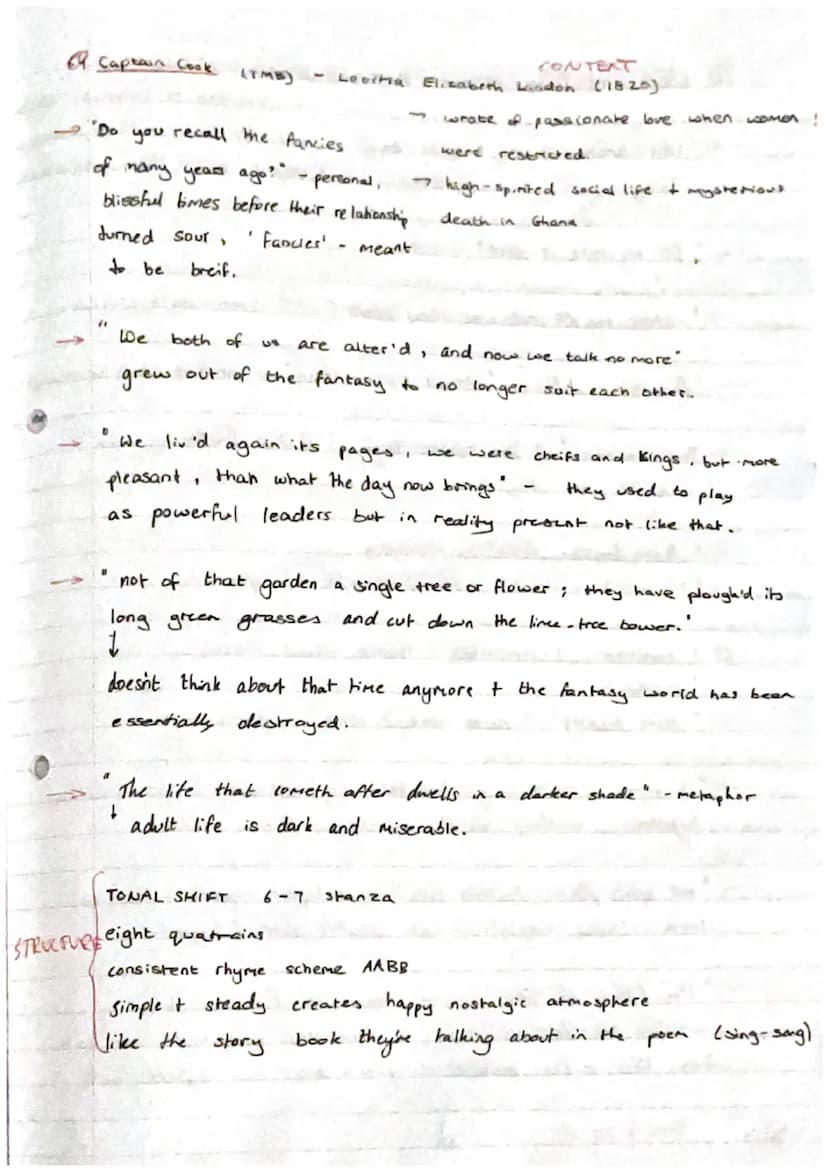 Captain Cook (TMB) - Leoitia Elizabeth Landon (1820)
CONTEXT
→ wrote of passionate love when women
were restricted.
→ high-spirited social life + mysterious
death in Ghana
→ "Do you recall the fancies
of many years ago?" - personal,
blissful times before their relationship
turned sour, 'fancies' - meant
to be breif.
→ "We both of us are alter'd, and now we talk no more"
grew out of the fantasy to no longer suit each other.
→ "We liv'd again its pages, we were cheifs and kings, but more
pleasant, than what the day now brings" - they used to play
as powerful leaders but in reality present not like that.
→ "not of that garden a single tree or flower; they have plough'd its
long green grasses and cut down the lime-tree bower."
↓
doesn't think about that time anymore + the fantasy world has been
essentially destroyed.
→ "The life that cometh after dwells in a darker shade" - metaphor
↓ adult life is dark and miserable.
STRUCTURE
TONAL SHIFT 6-7 stanza
eight quatrains
consistent rhyme scheme AABB
simple + steady creates happy nostalgic atmosphere
like the story book they're talking about in the poem (sing-song)